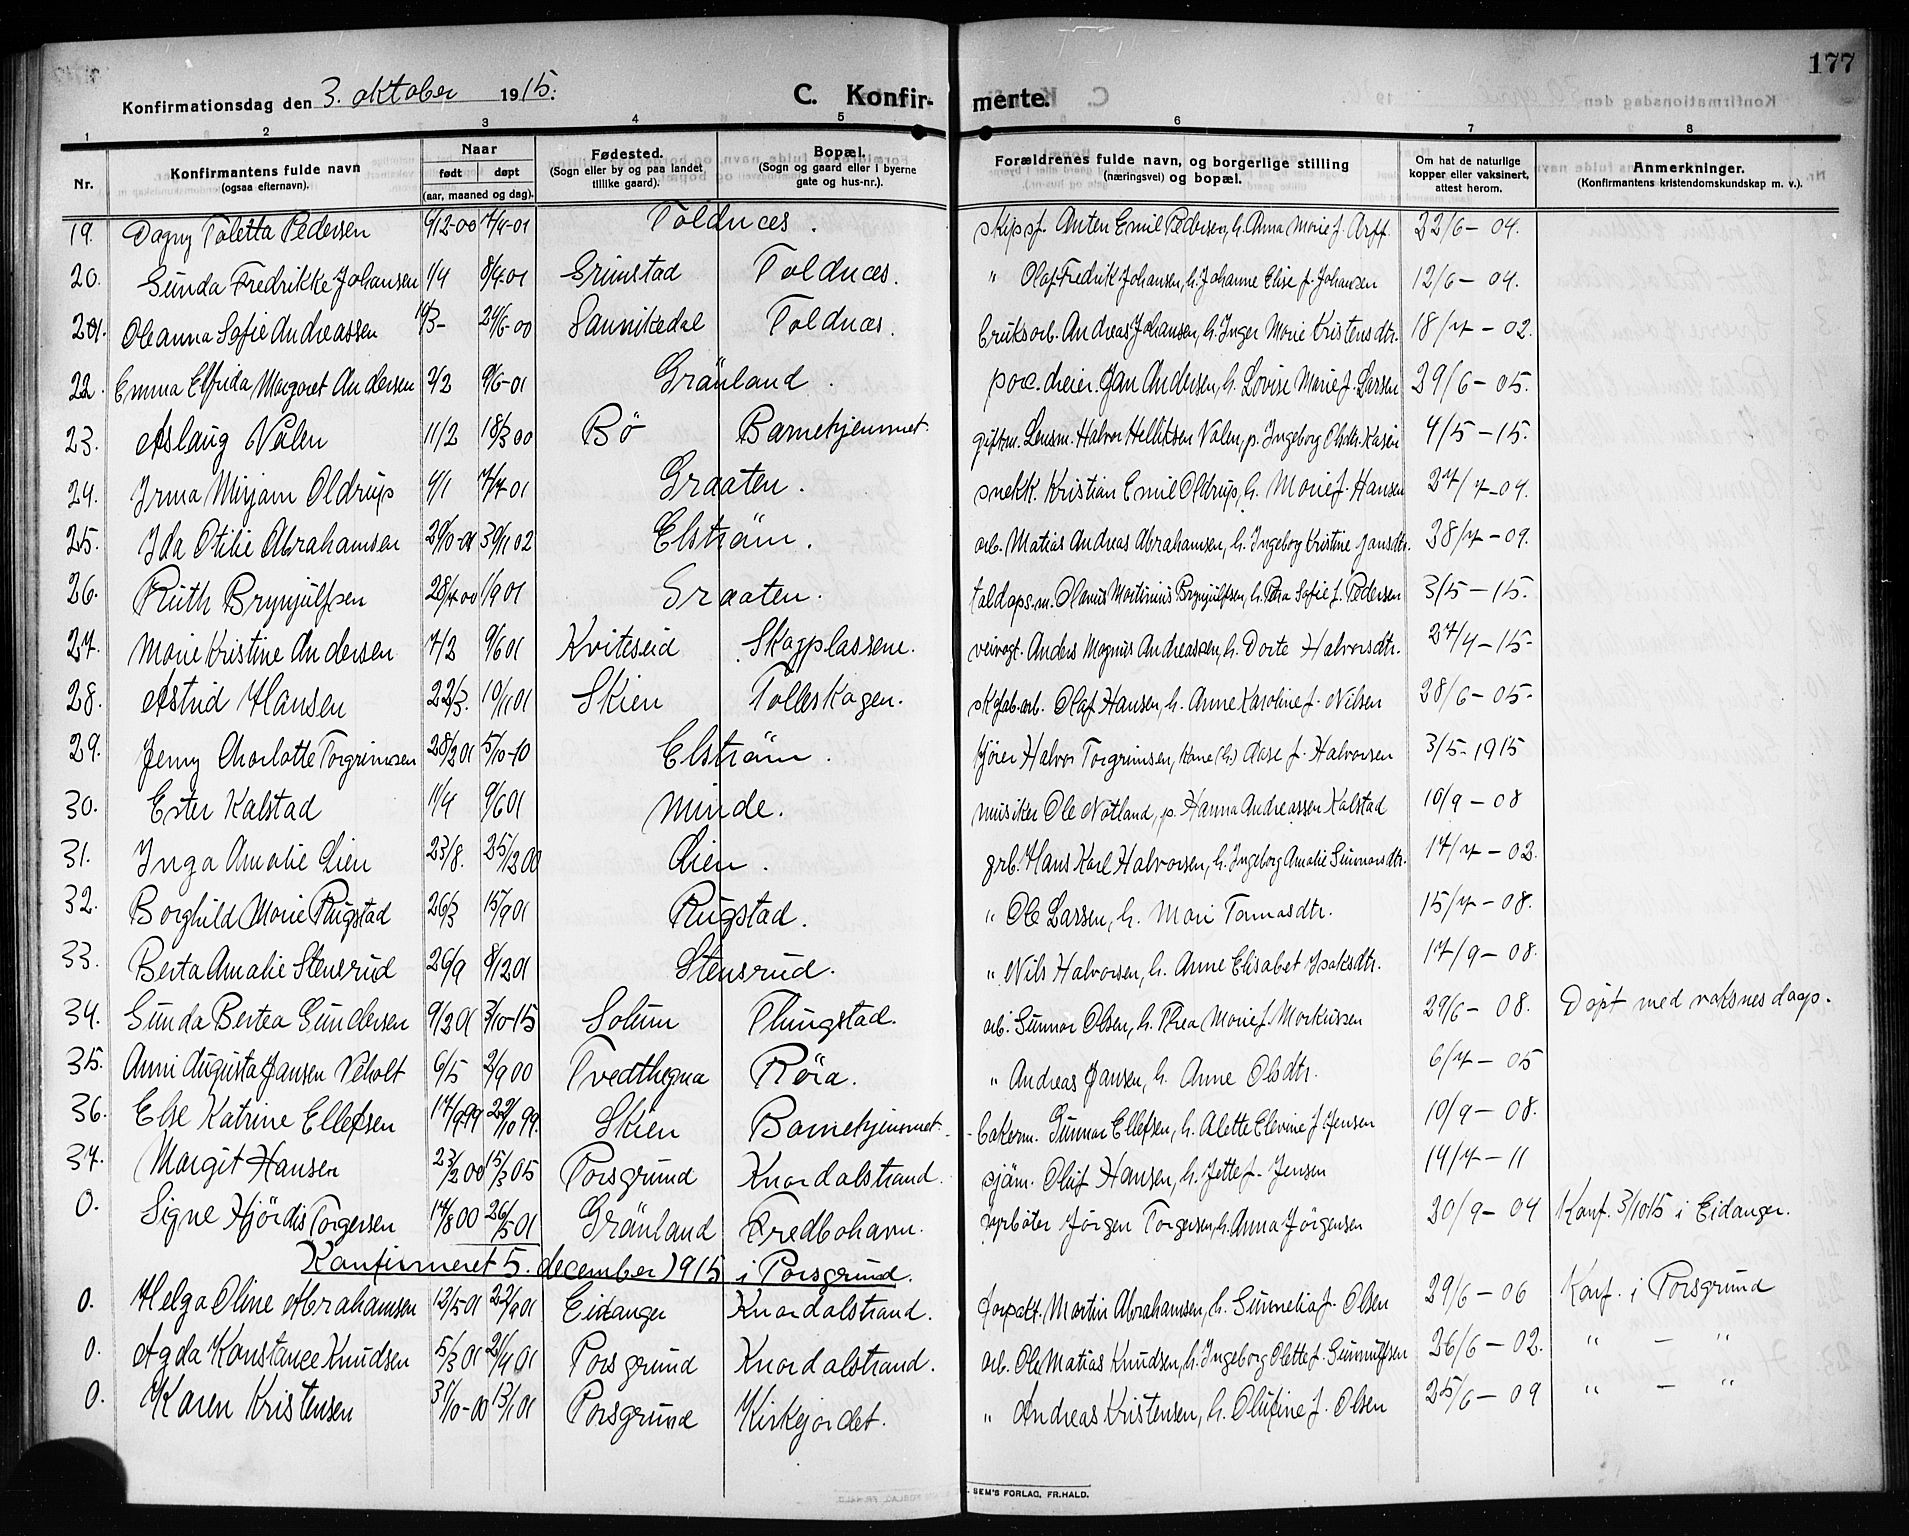 177
Konfirmationsdag den 3. oktober 1915. C. Konfirmerte.
1 2 3 4 5 6 7 8
Nr. Konfirmantens fulde navn (ogsaa efternavn). Naar født døpt (aar, maaned og dag). Fødested. (Sogn eller by og paa landet tillike gaard). Bopæl. (Sogn og gaard eller i byerne gate og hus-nr.). Forældrenes fulde navn, og borgerlige stilling (næringsvei) og bopæl. Om hat de naturlige kopper eller vaksinert, attest herom. Anmerkninger. (Konfirmantens kristendomskundskap m. v.).
19. Dagny Toletta Pedersen 6/12-00 7/4-01 Toldnes. skipsf. Anten Emil Pedersen, h. Anna Marie f. Arff. 22/6-04.
20. Gunda Fredrikke Johansen 1/4 8/4-01 Grimstad Toldnes. " Olaf Fredrik Johansen, h. Johanne Elise f. Johansen 12/6-04.
21. Oleanna Sofie Andreassen 24/6-00 Sannikedal Toldnes. bruksarb. Andreas Johansen, h. Inger Marie Kristensdtr. 18/7-02.
22. Emma Elfrida Margaret Andersen 2/2 9/6-01 Grönland. porc. dreier. Jan Andersen, h. Lovise Marie f. Larsen 29/6-05.
23. Aslaug Valen 11/2 18/3 00 Bø Barnehjemmet. giftm. Lensm. Halvor Helliksen Valen, p. Ingeborg Olsdtr. Kasin 4/5-15.
24. Irma Mirjam Oldrup 4/1 7/7 01 Graaten. snekk. Kristian Emil Oldrup, h. Marie f. Hansen 27/7-04.
25. Ida Otilie Abrahamsen 29/10-01 30/11 02 Elström. arb. Matias Andreas Abrahamsen, h. Ingeborg Kristine Jansdtr. 28/7-09.
26. Ruth Brynjulfsen 28/7 00 1/9 01 Graaten. toldops.m. Olanus Martinius Brynjulfsen, h. Petra Sofie f. Pedersen 3/5-15.
27. Marie Kristine Andersen 7/2 9/6 01 Kviteseid Skogplassene. veivogt. Anders Magnus Andreassen, h. Dorte Halvorsdtr. 27/4-15.
28. Astrid Hansen 22/3. 10/11 01 Skien Tolleskogen. skofab.arb. Olaf Hansen, h. Anne Karoline f. Nilsen 28/6-05.
29. Jenny Charlotte Torgrimsen 28/2 01 5/10-10 Elström. kjörer Halvor Torgrimsen, kone (h.) Aase f. Halvorsen 3/5-1915
30. Ester Kalstad 11/4 9/6 01 Minde. musiker Ole Nötland, p. Hanna Andreassen Kalstad 10/9-08
31. Inga Amalie Lien 23/8. 25/12 00 Lien. grb. Hans Karl Halvorsen, h. Ingeborg Amalie Gunnarsdtr. 17/7-02.
32. Borghild Marie Rugstad 26/3 15/9 01 Rugstad. " Ole Larsen, h. Mari Tomasdtr. 15/7-08.
33. Berta Amalie Stensrud 26/9 8/12 01 Stensrud. " Nils Halvorsen, h. Anne Elisabet Isaksdtr. 17/9-08.
34. Gunda Bertea Gundersen 9/12 01 3/10-15 Solum Plungstad. arb. Gunnar Olsen, h. Thea Marie f. Markussen 29/6-08. Döpt med voksnes daap.
35. Anni Augusta Jansen Veholt 6/5 2/9 00 Tvedthegna Röra. " Andreas Jansen, h. Anne Olsdtr. 6/7-05
36. Else Katrine Ellefsen 17/9 99 22/10 99. Skien Barnehjemmet. bakerm. Gunnar Ellefsen, h. Alette Elevine f. Jensen 10/9-08.
37. Margit Hansen 23/2 00 15/3 05 Porsgrund Knardalstrand. sjöm. Oluf Hansen, h. Jette f. Jensen 14/7-11
0. Signe Hjördis Torgersen 14/8 00 26/5 01 Grönland Fredbohavn. Jörgen Torgersen, h. Anna Jörgensen 30/9-04 Konf. 3/10 15 i Eidanger.
Konfirmeret 5. december 1915 i Porsgrund.
0. Helga Oline Abrahamsen 12/5 01 22/9 01 Eidanger Knardalstrand. Martin Abrahamsen, h. Gunnelia f. Olsen 29/6-06 Konf. i Porsgrund
0. Agda Konstance Knudsen 5/3 01 21/4 01 Porsgrund Knardalstrand. arb. Ole Matias Knudsen, h. Ingeborg Olette f. Gunnulfsen 26/6-02. " - "
0. Karen Kristensen 31/10-00 13/1 01 Porsgrund Kirkejordet. " Andreas Kristensen, h. Olufine f. Olsen 25/6-09 " - "
SEM'S FORLAG, FR.HALD.